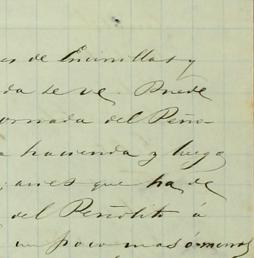 es de Encinillas y
da se ve. Puede
ornada del Peño-
a hacienda y luego
, antes que ha de
del Peñolito á
un poco mas ó menos